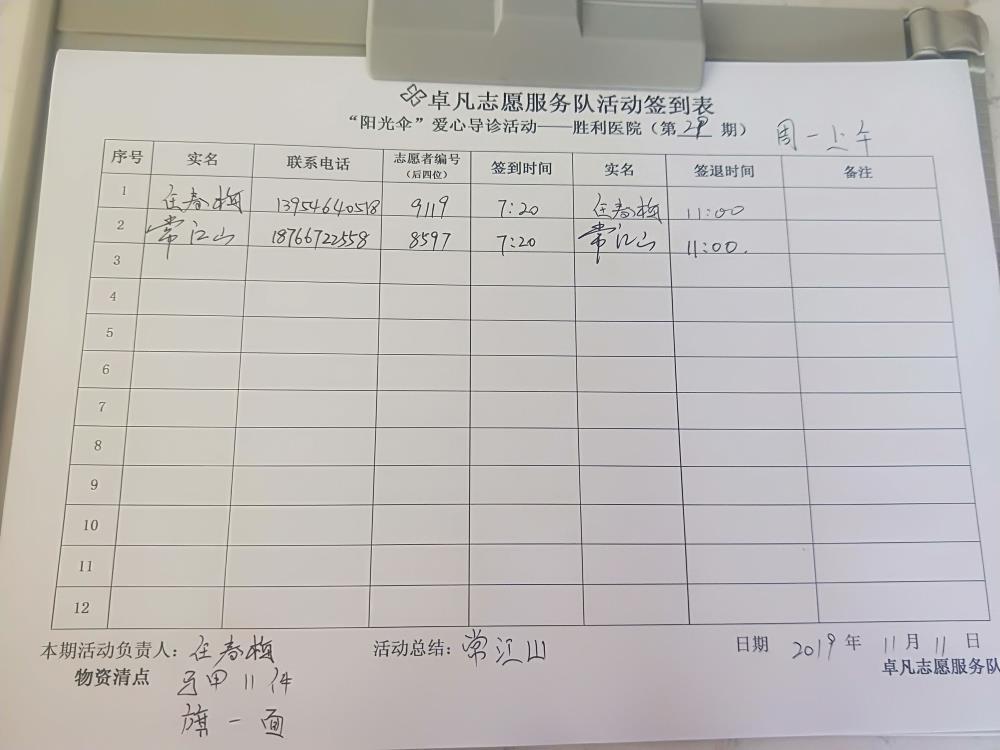 卓凡志愿服务队活动签到表
“阳光伞”爱心导诊活动——胜利医院（第29期） 周一上午
序号 实名 联系电话 志愿者编号（后四位） 签到时间 实名 签退时间 备注
1 任春梅 13954640518 9119 7:20 任春梅 11:00
2 常江山 18766722558 8597 7:20 常江山 11:00.
3
4
5
6
7
8
9
10
11
12
本期活动负责人：任春梅 活动总结：常江山 日期 2019年11月11日
卓凡志愿服务队
物资清点 马甲11件
旗一面